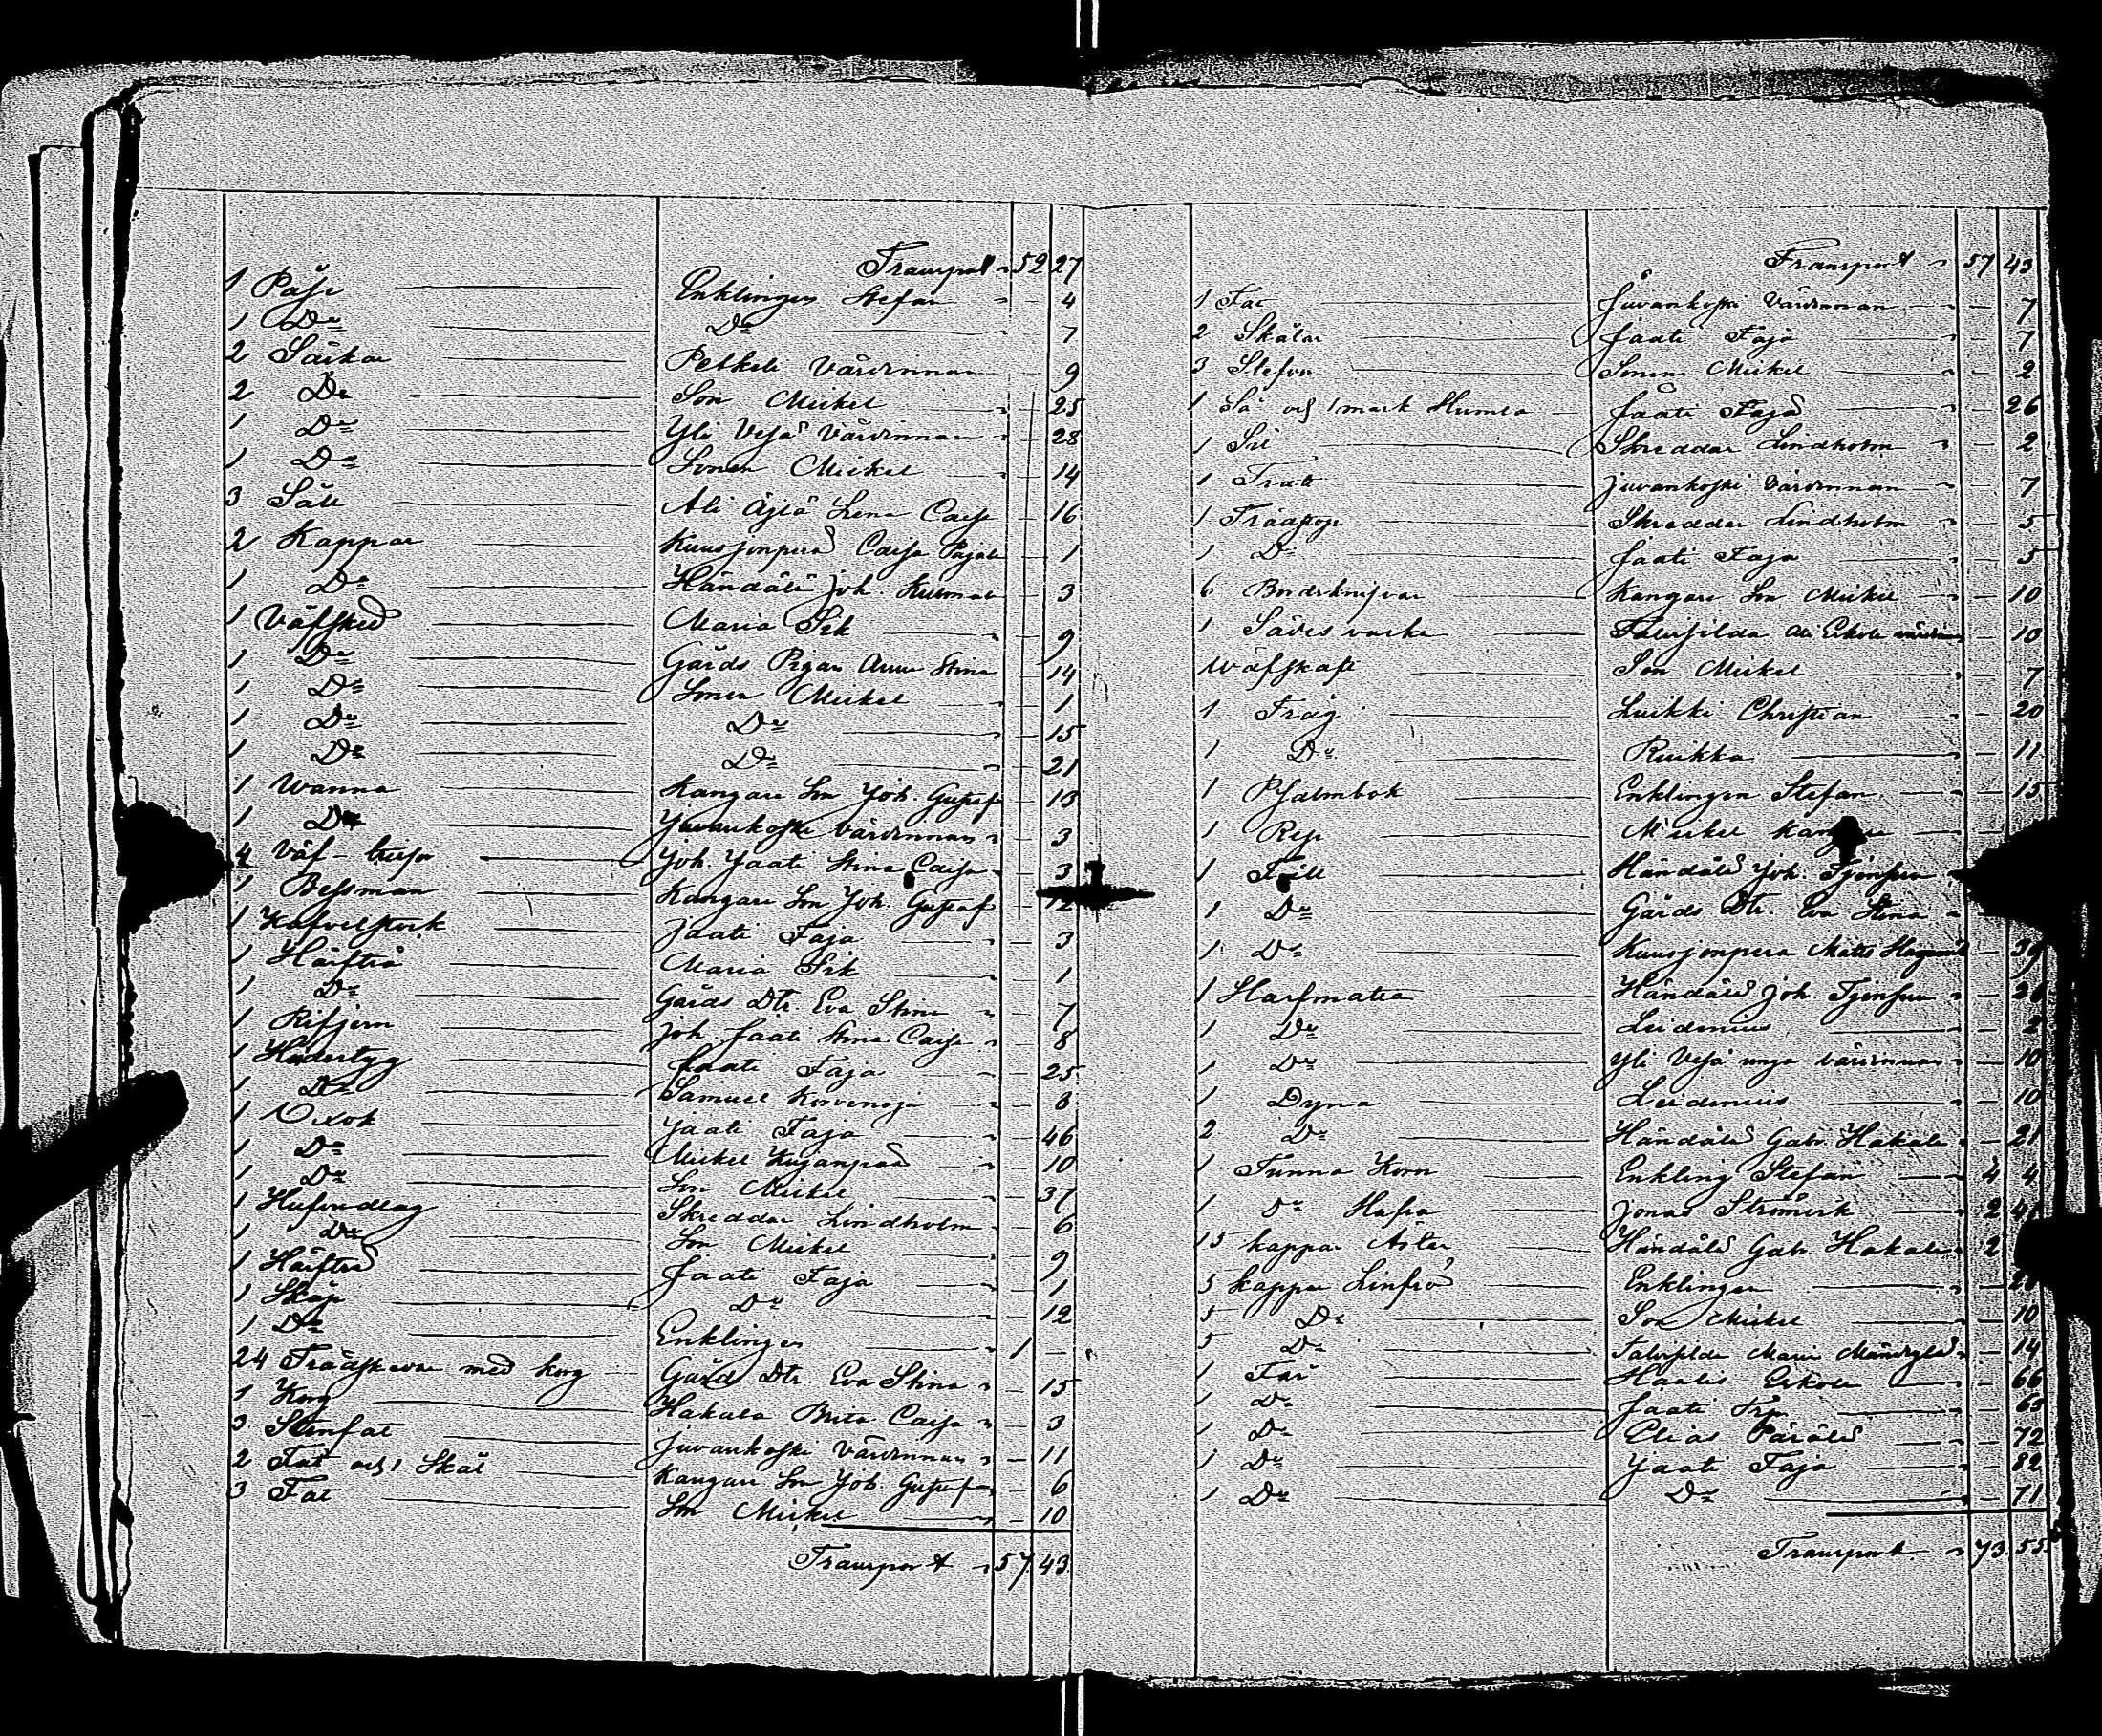 Transport " 52 27
1 Påse Enklingen Stefan " — 4
1 Do Do " 7
2 Säckar Petkele Värdinnan — 9
2 Do Son Meikel " — 25
1 Do Yli Vejä Värdinnan " — 28
1 Do Sonen Meickel " — 14
3 Såll Ali Äjlä Lena Caisa — 16
2 Kappar Kuusjonperä Caisa — 1
1 Do Händälä Joh. — 3
1 Väfsked Maria Sik " — 9
1 Do Gårds Pigan Anna Stina — 14
1 Do Sonen Meickel " — 1
1 Do Do " — 15
1 Do Do " — 21
1 Wanna Kangare Son Joh. Gustaf — 13
1 Do Juvankoski värdinnan " — 3
4 Väf- Joh. Jaati Stina Caisa " 3
1 Bessman Kangare Son Joh. Gustaf 12
1 Kafvelstock Jaati Faja " — 3
1 Maria Sik " — 1
1 Do Gårds Dtr. Eva Stina " 7
1 Rifjern Joh. Jaati Stina Caisa " — 8
1 Jaati Faja — 25
1 Do Samuel " — 3
1 Oxok Jaati Faja " — 46
1 Do Meikel " — 10
1 Do Son Meikel " — 37
1 Skreddar Lindholm " — 6
1 Do Son Meikel — 9
1 Jaati Faja " — 1
1 Skåp Do " — 12
1 Do Enklingen " 1 —
24 Trädskedar med korg Gårds Dtr. Eva Stina " — 15
1 Korg Hakala Brita Caisa " — 3
3 Stenfat Juvankoski Värdinnan " — 11
2 Fat och 1 Skål Kangare Son Joh. Gustaf " 6
3 Fat Son Meikel " — 10
Transport " 57. 43.
Transport " 57 43
1 Fat Juvankoski Värdinnan " — 7
2 Skålar Jaati Faja " — 7
3 Sonen Meikel " — 2
1 Så och 1 mark Humla Jaati Faja " — 26
1 Sil Skreddar Lindholm " — 2
1 Tratt Juvankoski Värdinnan " — 7
1 Skreddar Lindholm " — 5
1 Do Jaati Faja " — 5
6 Bordsknifvar Kangare Son Meikel " — 10
1 10
Wäfskaft Son Meikel " — 7
1 Tråg Luikki Christian " — 20
1 Do " — 11
1 Psalmbok Enklingen Stefan " — 15
1 Rep Meikel —
1 Fäll Händälä Joh.
1 Do Gårds Dtr. Eva Stina "
1 Do Kuusjonperä Matts
1 Händälä Joh. "
1 Do Leidenius — 2
1 Do Yli Vejä unga värdinnan " — 10
1 Dyna Leidenius " — 10
2 Do Händälä Gabr. Hakala " — 21
1 Tunna Korn Enkling Stefan " 4 4
1 Do Hafra Jonas " 2
15 kappar Ärter Händälä Gabr. Hakala " 2
5 kappar Linfrö Enklingen "
5 Do Son Meikel — 10
5 Do " — 14
1 Får " — 66
1 Do Jaati " —
1 Do Elias " — 72
1 Do Jaati Faja " — 82
1 Do Do " — 71
Transport " 73. 55.